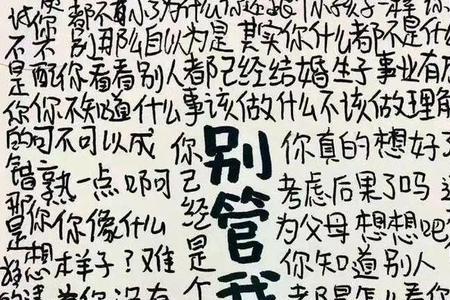 都不小了为什么你还跟个孩子一样 你
不 别那么自以为是 其实你什么都不是
不配你看看别人都已经结婚生子事业有
是你你不知道什么事该做什么不该做理解
的可不可以成 你 你真的想好了
错熟一点啊 已 考虑后果了吗
那你你像什么 经 为父母想想吧
是想样子?难 是 你知道别人
没有 个
别管我